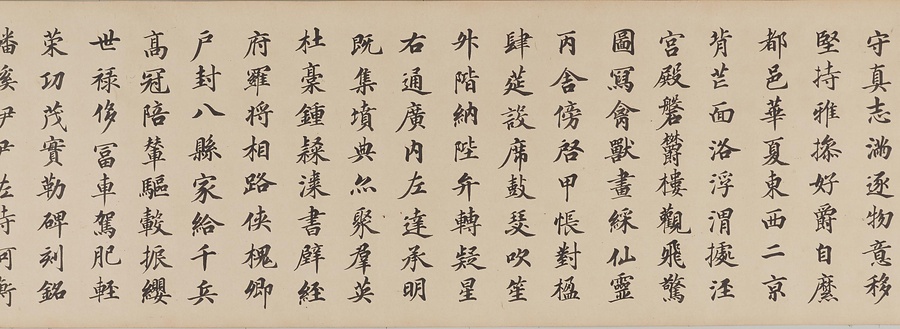 守真志滿逐物意移
堅持雅操好爵自縻
都邑華夏東西二京
背芒面洛浮渭據涇
宮殿磐欝樓觀飛驚
圖寫禽獸畫綵仙靈
丙舍傍啓甲帳對楹
肆筵設席鼓瑟吹笙
升階納陛弁轉疑星
右通廣內左達承明
既集墳典亦聚羣英
杜稾鍾隸漆書壁經
府羅將相路俠槐卿
戶封八縣家給千兵
高冠陪輦驅轂振纓
世祿侈富車駕肥輕
策功茂實勒碑刻銘